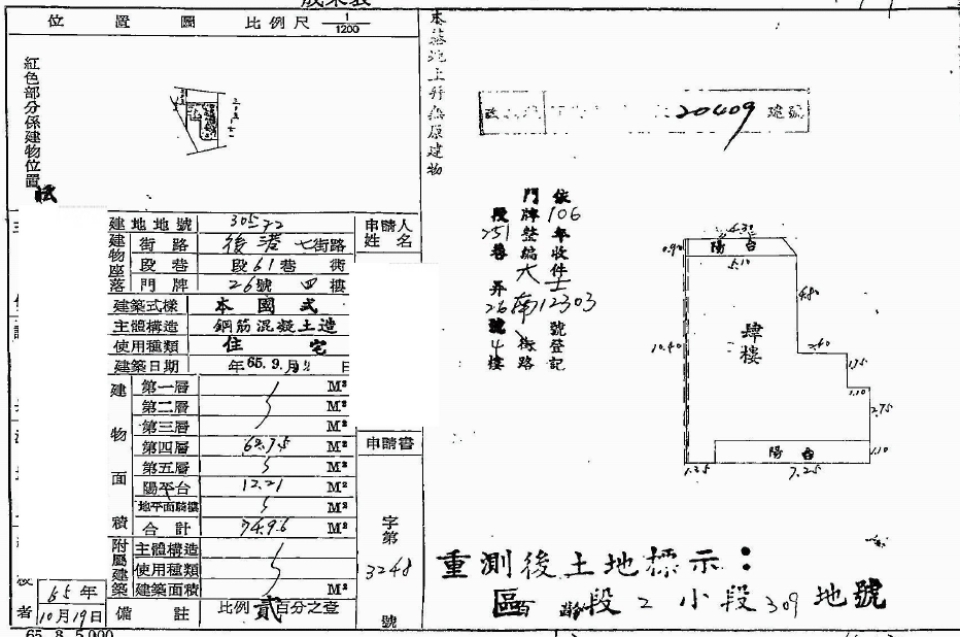 位置圖 比例尺 1/1200
紅色部分係建物位置
本基地上并無原建物
20409 建號
建地地號 305-72
建物座落 街路 後港七街路
段巷 段61巷 衖
門牌 26號四樓
建築式樣 本國式
主體構造 鋼筋混凝土造
使用種類 住宅
建築日期 年65.9.月 日
建物面積
第一層 M²
第二層 M²
第三層 M²
第四層 62.75 M²
第五層 M²
陽平台 12.21 M²
地平面騎樓 M²
合計 74.96 M²
附屬建築
主體構造
使用種類
建築面積 M²
備註 比例貳百分之壹
申請人姓名
申請書
字第
3248
號
者
65年
10月19日
65.8.5,000
依106年收件士
12303號登記
門牌整編
街路
段251巷
弄26號4樓
4.30
陽台
0.90
5.10
4.80
肆樓
10.40
2.60
1.75
1.10
2.75
陽台
1.10
1.25
7.25
重測後土地標示：
區 段 2 小段 309 地號